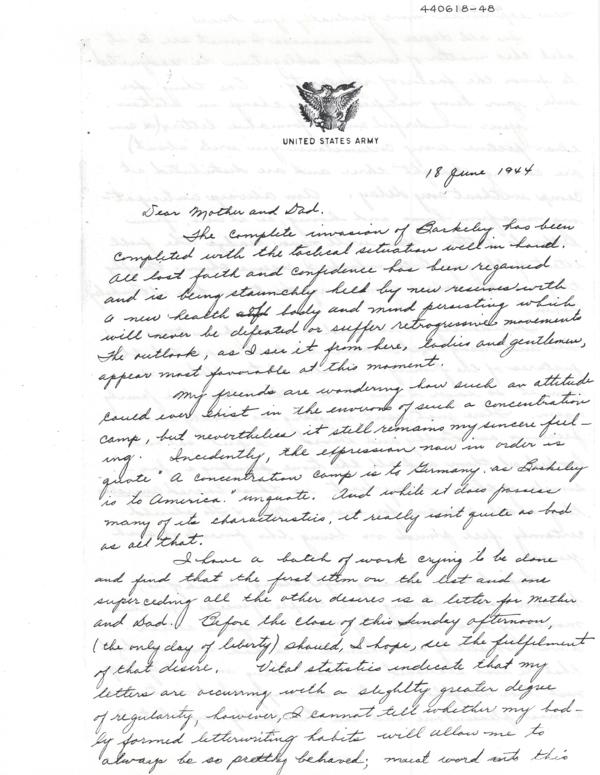 440618-48
UNITED STATES ARMY
18 June 1944
Dear Mother and Dad.
The complete invasion of Barkeley has been
completed with the tactical situation well in hand.
All lost faith and confidence has been regained
and is being staunchly held by new reserves with
a new health of body and mind persisting which
will never be defeated or suffer retrogressive movements
The outlook, as I see it from here, ladies and gentlemen,
appear most favorable at this moment.
My friends are wondering how such an attitude
could ever exist in the environs of such a concentration
camp, but nevertheless it still remains my sincere feel-
ing. Incidently, the expression now in order is
quote "A concentration camp is to Germany, as Barkeley
is to America." unquote. And while it does possess
many of its characteristics, it really isn't quite as bad
as all that.
I have a batch of work crying to be done
and find that the first item on the list and one
superceding all the other desires is a letter for Mother
and Dad. Before the close of this Sunday afternoon,
(the only day of liberty) should, I hope, see the fulfilment
of that desire. Vital statistics indicate that my
letters are occurring with a slighlty greater degree
of regularity, however, I cannot tell whether my bad-
ly formed letterwriting habits will allow me to
always be so pretty behaved; must word into this